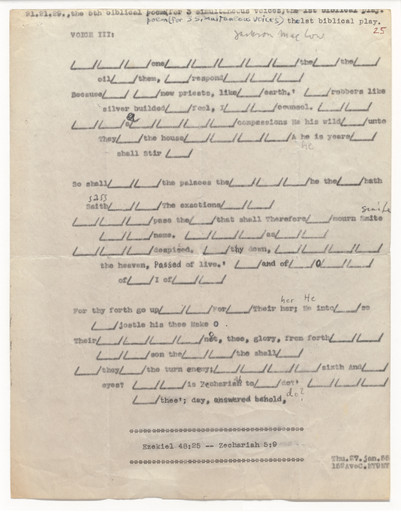 the 5th biblical poem (for 3 simultaneous voices), the 1st biblical play.
poem (for 3 simultaneous voices) the 1st biblical play.
Jackson Mac Low
25
VOICE III:
/___/___/___/one/___/___/___/___/___/___/the/___/the/
oil/___/then, /___/respond/___/___/___/___/
Because/___/ /___/new priests, like/___/earth.' /___/robbers like
silver builded/___/feel, I/___/counsel. /___/___/
/___/___/___/___/___/___/___/compassions He his wild/___/unto
They/___/the house/___/___/___/___/A he is years/
he
shall Stir /___/
So shall/___/___/the palaces the/___/___/he the/___/hath
Smith/___/___/The exactions/___/___/
/___/___/___/pass the/___/that shall Therefore/___/mourn Smite
Smite
/___/___/name. /___/___/___/so/___/___/
/___/___/___/despised. /___/thy down, /___/___/___/___/
the heaven, Passed of live.' /___/and of/___/O/___/___/
of/___/I of/___/___/
For thy forth go up/___/___/For/___/Their her; He into/___/so
her He
/___/jostle his thee Make O .
Their/___/___/___/___/not, thee, glory, from forth/___/___/
/___/___/son the/___/___/the shall/___/
/___/they/___/the turn enemy:/___/___/___/___/sixth And/
eyes? /___/___/is Zechariah to/___/
/___/thee'; day, answered behold,
do?
Ezekiel 48:25 -- Zechariah 5:9
Thu.27.Jan.55